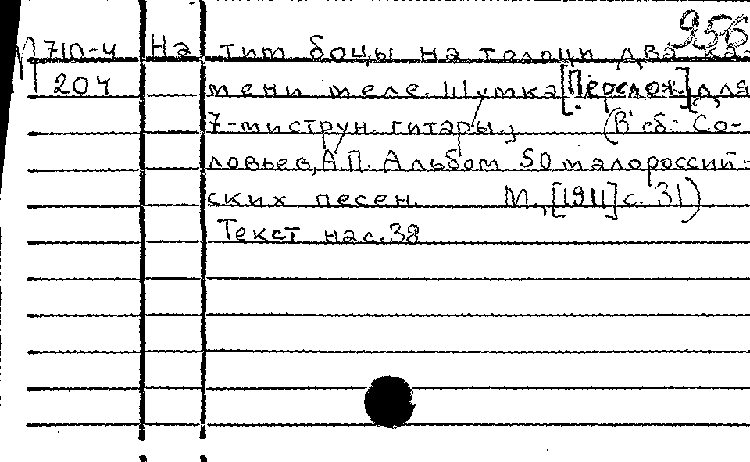 256
М 710-4 На тим боцы на толоци два ка-
204 мени меле. Шутка [Перелож.] для
7-миструн. гитары, (В сб: Со-
ловьев, А.П. Альбом 50 малороссий-
ских песен. М., [1911] с. 31)
Текст на с. 38